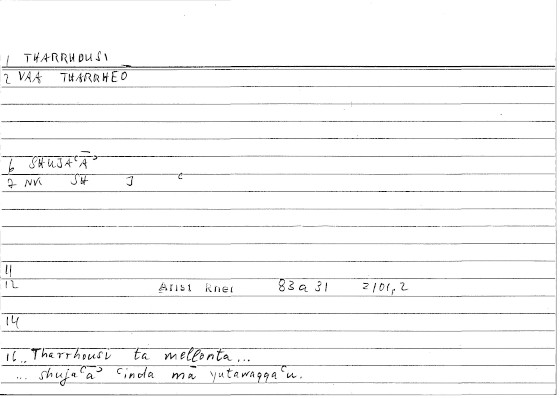 1 THARRHOUSI
2 VAA THARRHEO
6 SHUJAʿĀʾ
7 NK SH J ʿ
11
12 Arist Rhet 83a31 2101,2
14
16 .. Tharrhousi ta mellonta ...
... shujaʿāʾ ʿinda mā yutawaqqaʿu.